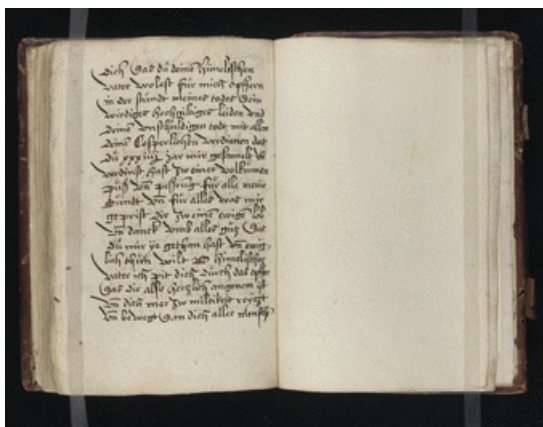 dich das du deinem himelischen
vater wolest für mich opffern
in der stundt meines todes dein
wirdigs hochgiltigs leiden vnd
deinen vnschuldigen todt mit allem
deinem kosperlichen verdienen das
du xxxiiij jar mir gesamelt vn
verdinst hast zw einer volkumen
puß vnd pesserung für alle meine
sündt vnd für alles was mir
geprist dir zw einem ewigen lob
vnd danck vmb alles guts das
du mir ye gethan hast vnd ewig
lich thun wilt O himelischer
vater ich pit dich durch das opffer
das dir also hertzlich angenem ist
vnd dich mer zw miltikeit reytzt
vnd bewegt dan dich aller mensch